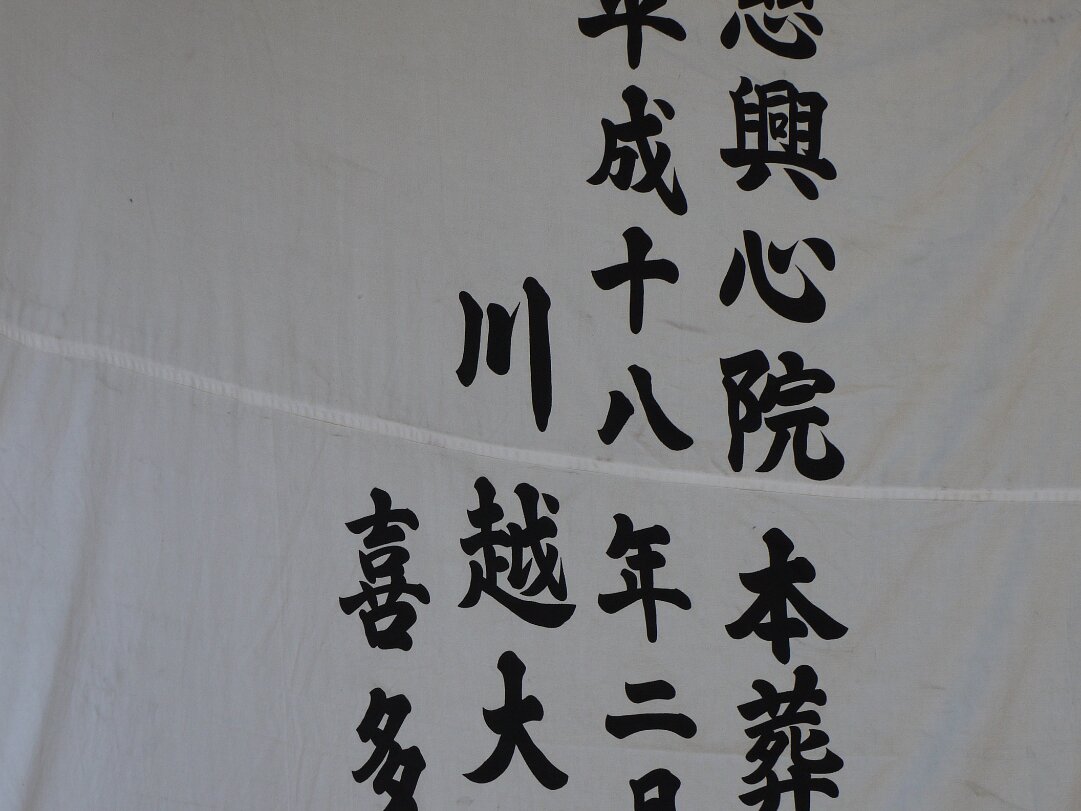 慈興心院 本葬
平成十八年二月
川越大
喜多